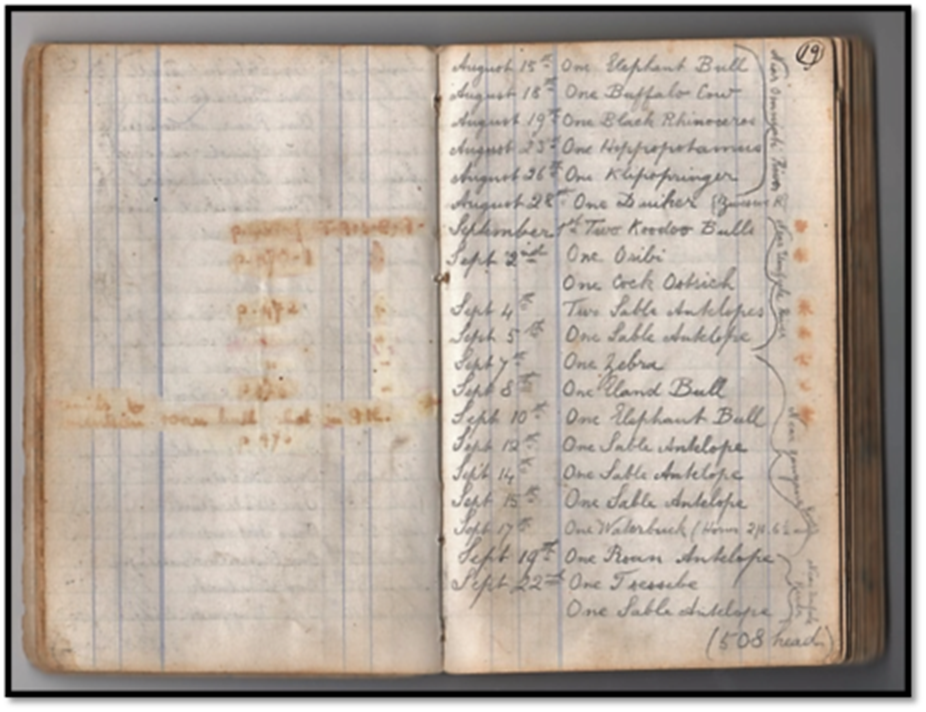 19
August 15th One Elephant Bull
August 18th One Buffalo Cow
August 19th One Black Rhinoceros
August 23rd One Hippopotamus
August 26th One Klipspringer
August 28th One Duiker
September 1st Two Koodoo Bulls
Sept 2nd One Oribi
One Cock Ostrich
Sept 4th Two Sable Antelopes
Sept 5th One Sable Antelope
Sept 7th One Zebra
Sept 8th One Eland Bull
Sept 10th One Elephant Bull
Sept 12th One Sable Antelope
Sept 14th One Sable Antelope
Sept 15th One Sable Antelope
Sept 17th One Waterbuck (Horn
Sept 19th One Roan Antelope
Sept 22nd One Tsessebe
One Sable Antelope
(508 head)
Near
River
Near
River
Near